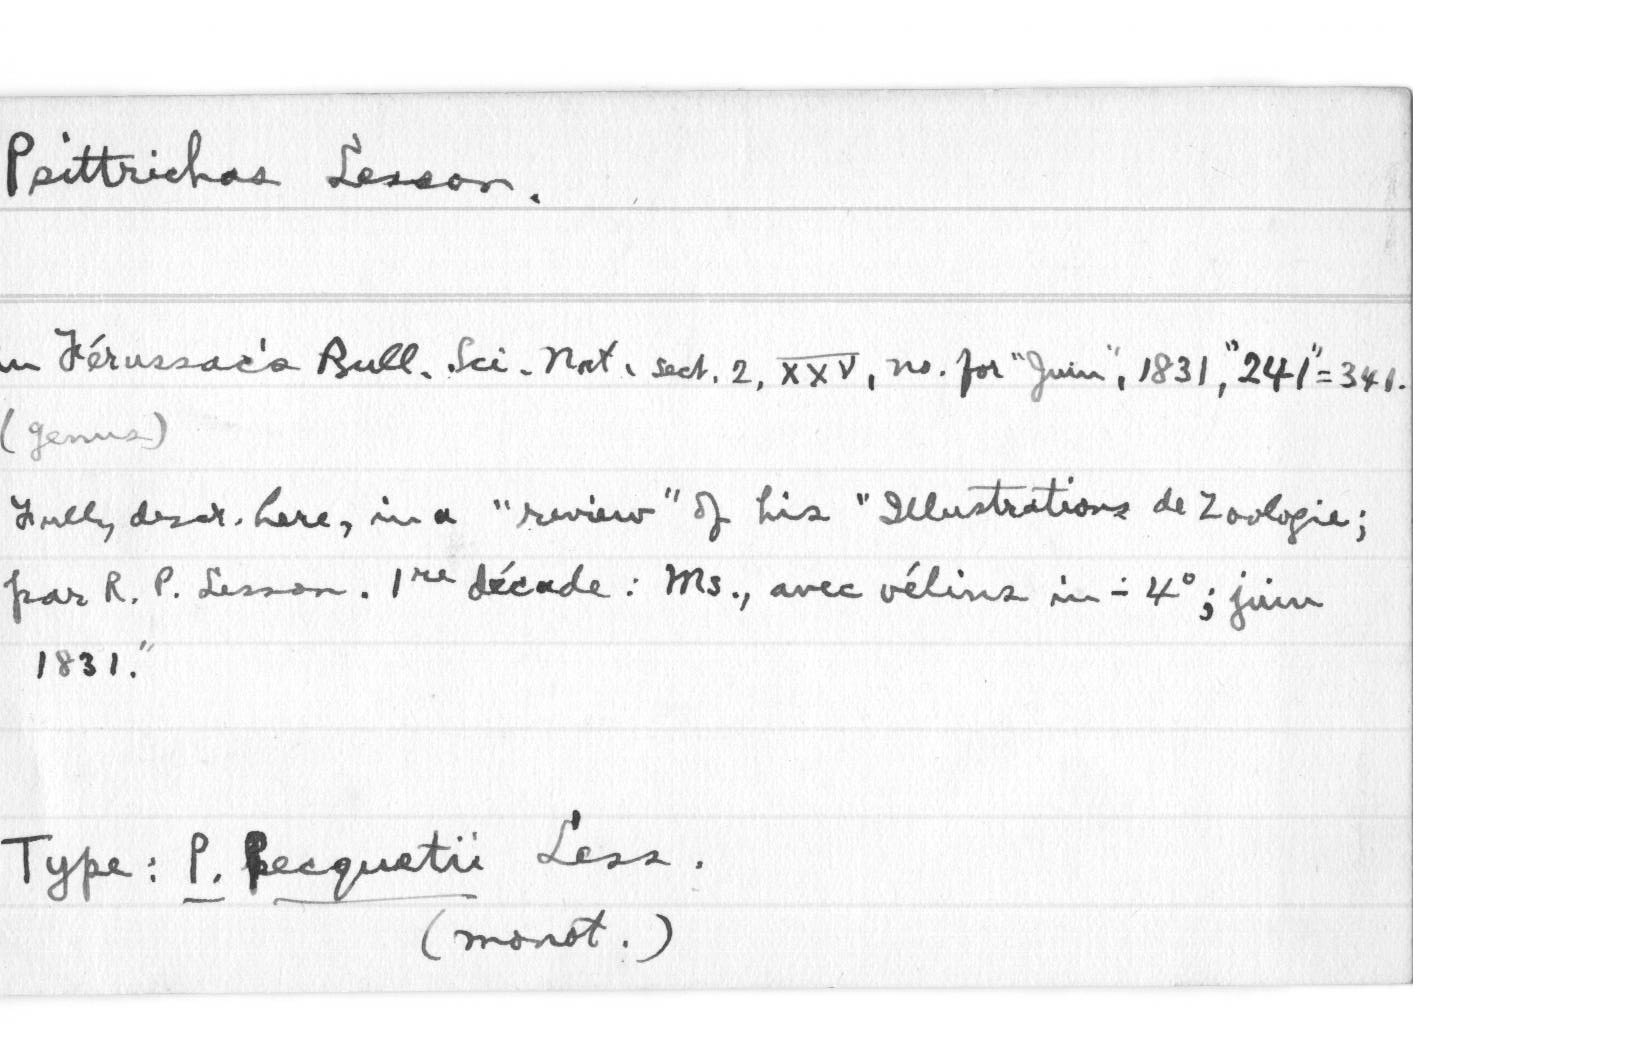 Psittrichas Lesson.
in Férussac's Bull. Sci. Nat. sect. 2, XXV, no. for "Juin", 1831, "241" = 341.
(genus)
Fully descr. here, in a "review" of his "Illustrations de Zoologie;
par R. P. Lesson. 1re décade: Ms., avec vélins in-4°; juin
1831."
Type: P. Pecquetii Less.
(monot.)